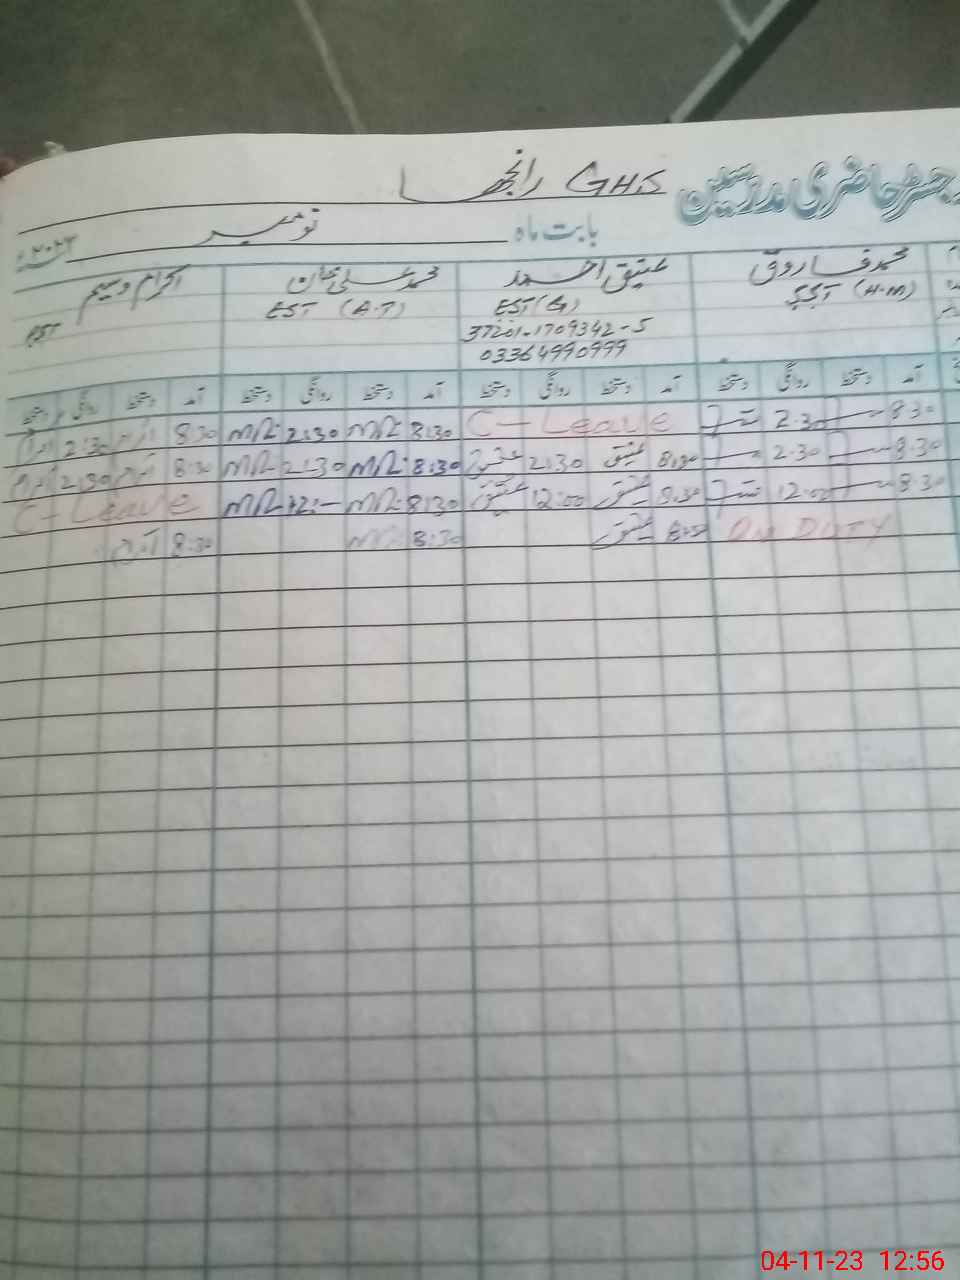 رجسٹر حاضری مدرسین GHS رانجھا
بابت ماہ نومبر ۲۰۲۳ء
محمد فاروق عتیق احمد محمد علی خان اکرام وسیم
SST (H.M) EST (G) EST (A.T) EST
37201-1709342-5
03364990999
آمد دستخط روانگی دستخط آمد دستخط روانگی دستخط آمد دستخط روانگی دستخط آمد دستخط روانگی دستخط
8:30 2:30 C-Leave 8:30 M/R 2:30 M/R 8:30 2:30
8:30 2:30 8:30 عتیق 2:30 عتیق 8:30 M/R 2:30 M/R 8:30 2:30
8:30 12:00 8:30 عتیق 12:00 عتیق 8:30 M/R 12:- M/R C-Leave
ON DUTY 8:30 عتیق 8:30 8:30
04-11-23 12:56